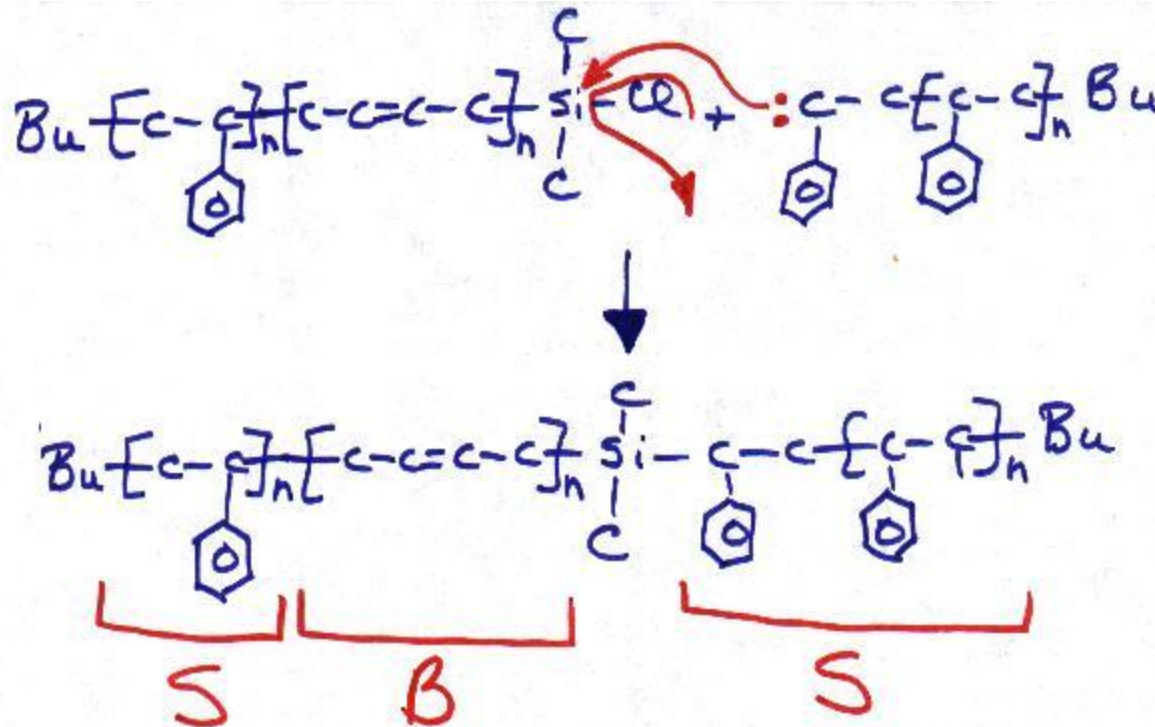 C
Bu-[C-C]n-[C-C=C-C]n-Si-Cl + :C-C-[C-C]n-Bu
C
C
Bu-[C-C]n-[C-C=C-C]n-Si-C-C-[C-C]n-Bu
C
S B S